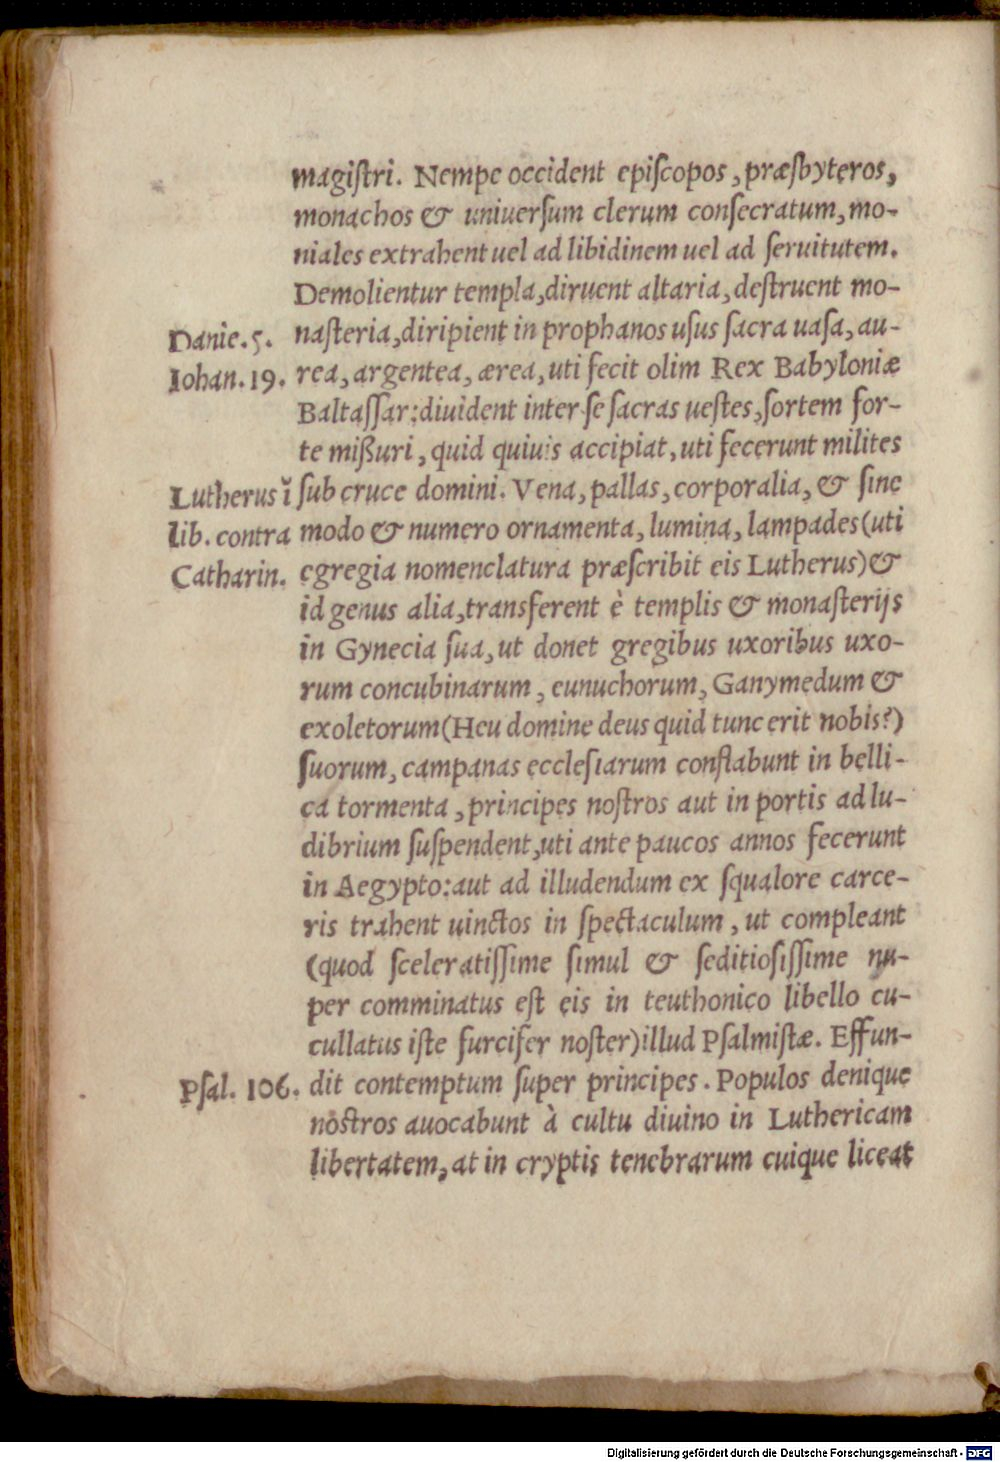 magiſtri. Nempe occident epiſcopos, præſbyteros,
monachos & uniuerſum clerum conſecratum, mo-
niales extrahent uel ad libidinem uel ad ſeruitutem.
Demolientur templa, diruent altaria, deſtruent mo-
Danie. 5. naſteria, diripient in prophanos uſus ſacra uaſa, au-
Iohan. 19. rea, argentea, ærea, uti fecit olim Rex Babyloniæ
Baltaſſar: diuident inter ſe ſacras ueſtes, ſortem for-
te mißuri, quid quiuis accipiat, uti fecerunt milites
Lutherus ĩ ſub cruce domini. Vena, pallas, corporalia, & ſine
lib. contra modo & numero ornamenta, lumina, lampades (uti
Catharin. egregia nomenclatura præſcribit eis Lutherus) &
id genus alia, transferent è templis & monaſterijs
in Gynecia ſua, ut donet gregibus uxoribus uxo-
rum concubinarum, eunuchorum, Ganymedum &
exoletorum (Heu domine deus quid tunc erit nobis?)
ſuorum, campanas eccleſiarum conflabunt in belli-
ca tormenta, principes noſtros aut in portis ad lu-
dibrium ſuſpendent, uti ante paucos annos fecerunt
in Aegypto: aut ad illudendum ex ſqualore carce-
ris trahent uinctos in ſpectaculum, ut compleant
(quod ſceleratiſſime ſimul & ſeditioſiſſime nu-
per comminatus eſt eis in teuthonico libello cu-
cullatus iſte furcifer noſter) illud Pſalmiſtæ. Effun-
Pſal. 106. dit contemptum ſuper principes. Populos denique
noſtros auocabunt à cultu diuino in Luthericam
libertatem, at in cryptis tenebrarum cuique liceat
Digitalisierung gefördert durch die Deutsche Forschungsgemeinschaft - DFG